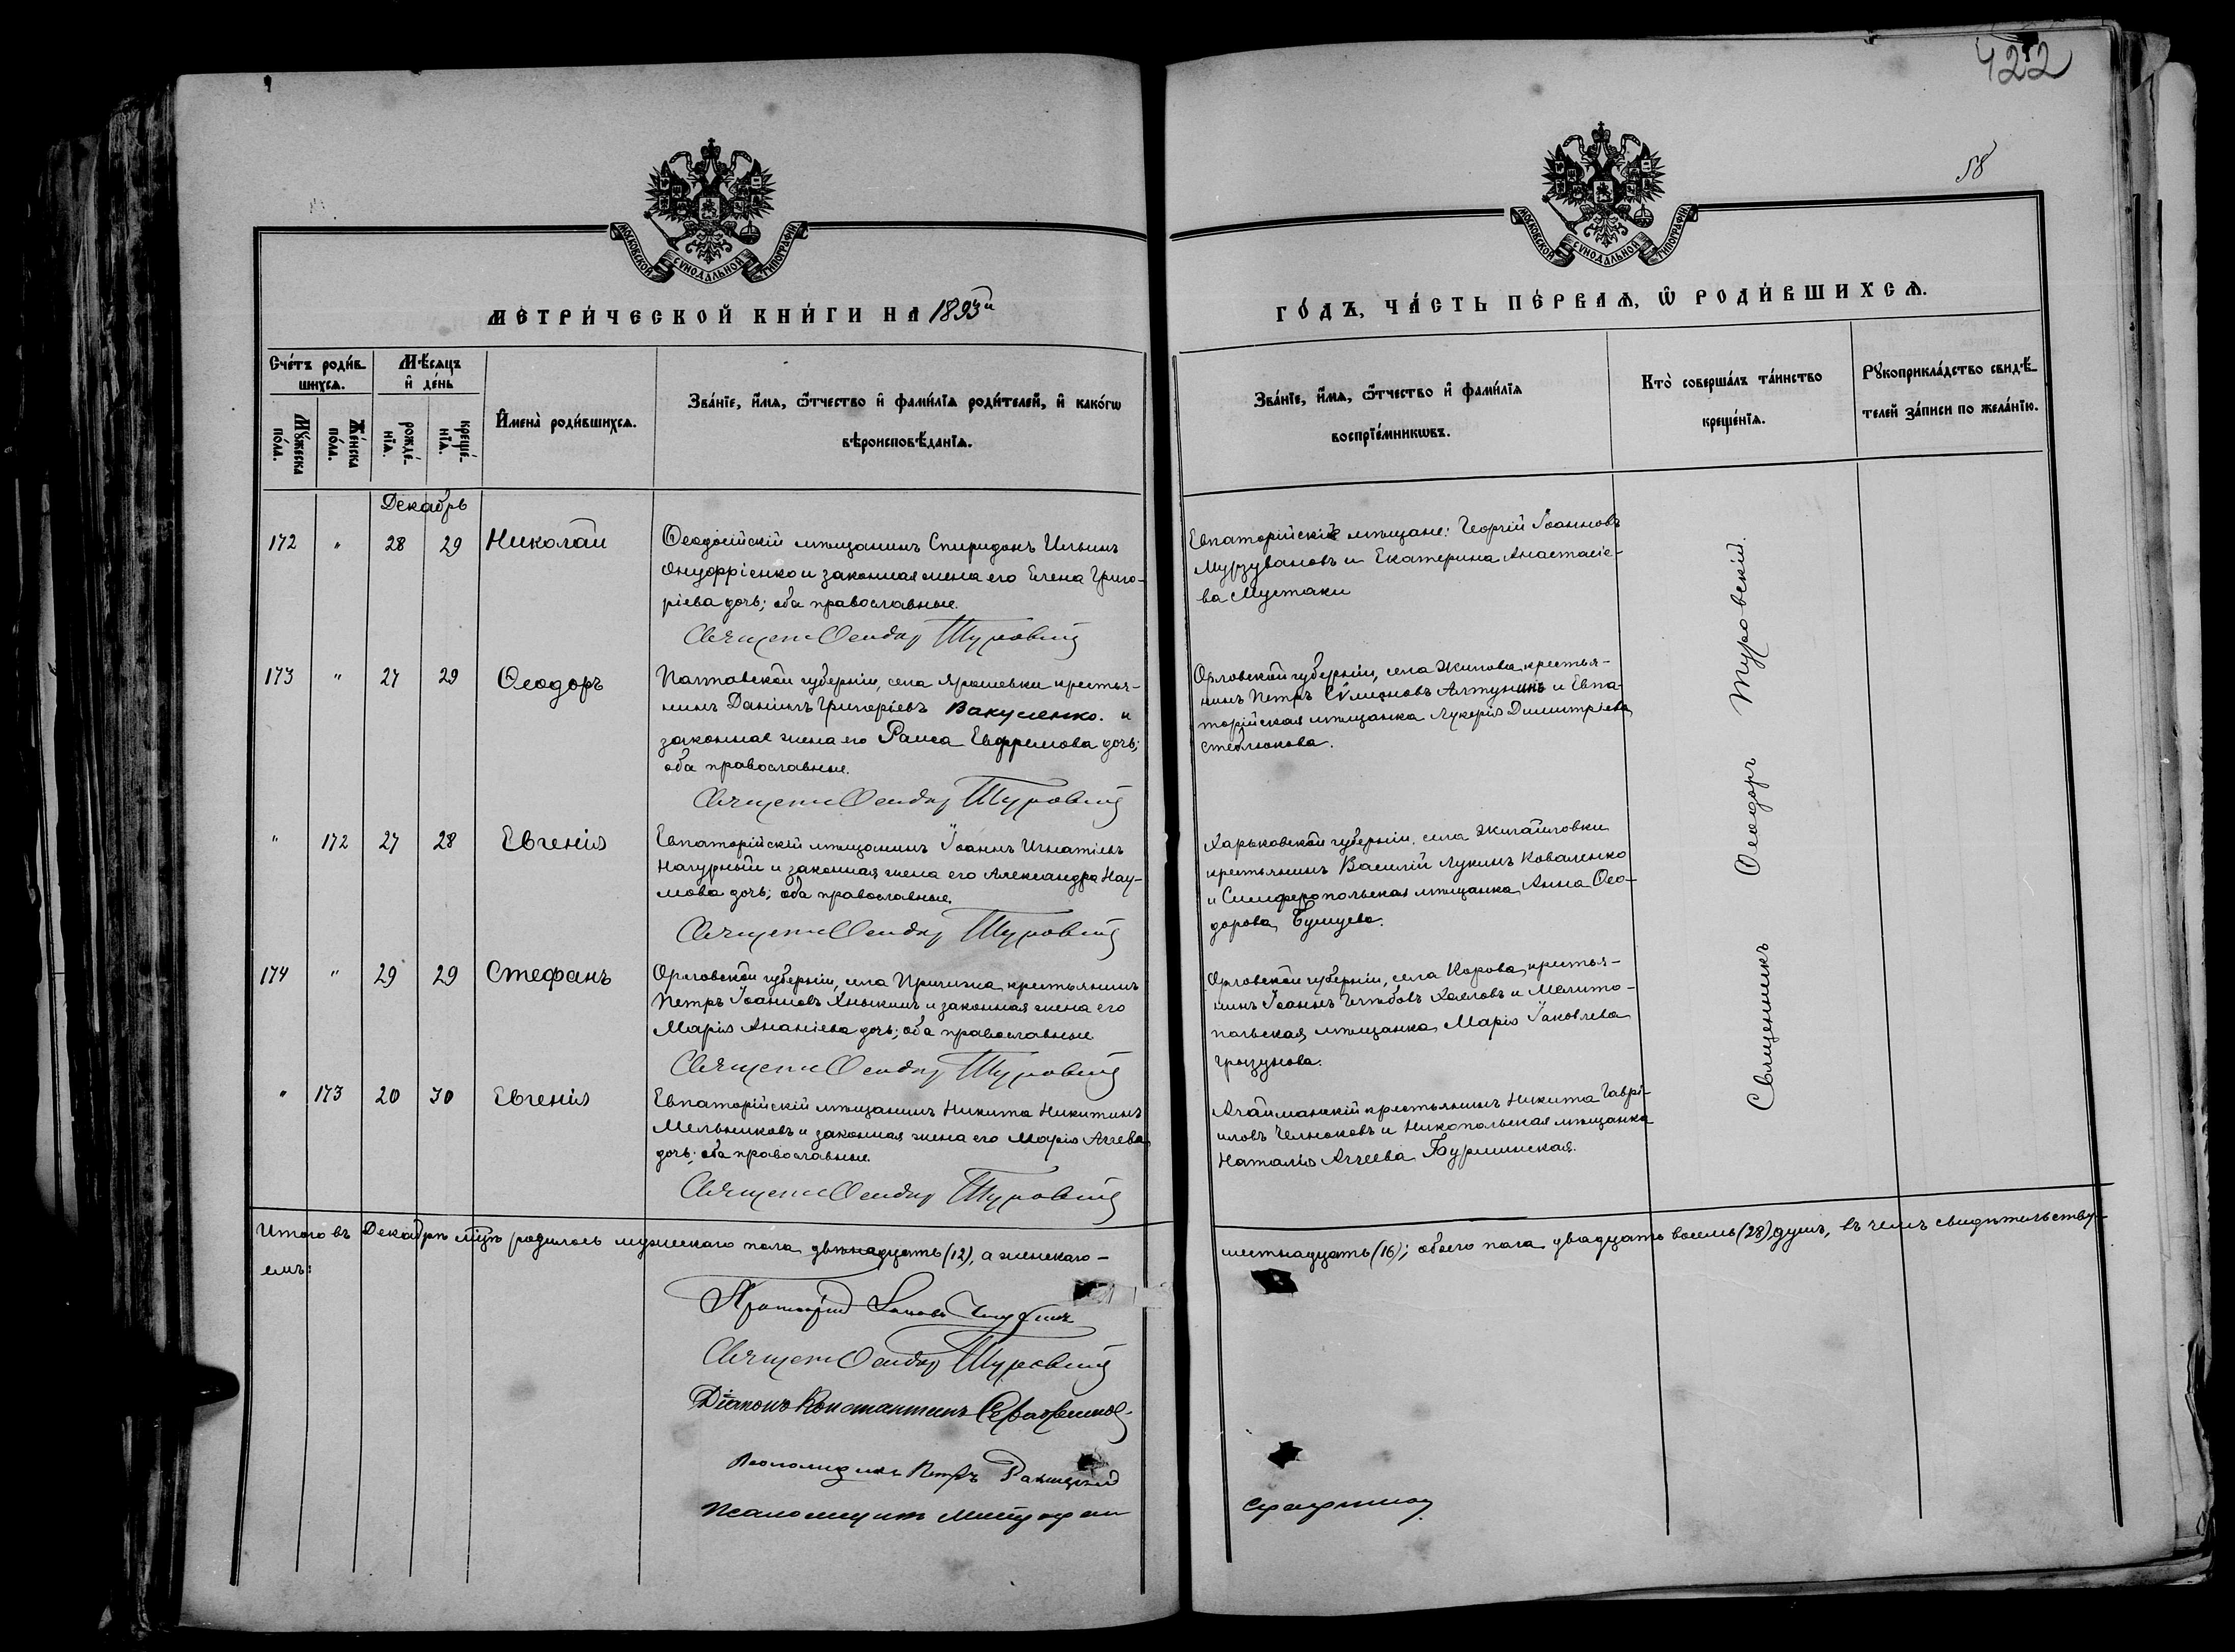 422
58
МОСКОВСКОЙ СѴНОДАЛЬНОЙ ТИПОГРАФІИ
МОСКОВСКОЙ СѴНОДАЛЬНОЙ ТИПОГРАФІИ
МЕТРИ́ЧЕСКОЙ КНИ́ГИ НА 1893й
ГО́ДЪ, ЧА́СТЬ ПЕ́РВАѦ, Ѿ РОДИ́ВШИХСѦ.
Сче́тъ роди́в-
шихсѧ.
Мꙋ́жеска по́ла.
Же́нска по́ла.
Мѣ́сѧцъ
и҆ де́нь
рожде́-
нїѧ.
креще́-
нїѧ.
И҆мена̀ роди́вшихсѧ.
Зва́нїе, и҆́мѧ, ѻ҆́тчество и҆ фами́лїѧ роди́телей, и҆ како́гѡ
вѣроисповѣ́данїѧ.
Зва́нїе, и҆́мѧ, ѻ҆́тчество и҆ фами́лїѧ
воспрїе́мникѡвъ.
Кто̀ соверша́лъ та́инство
креще́нїѧ.
Рꙋкоприкла́дство свидѣ́-
телей за́писи по жела́нїю.
Декабрь
172 " 28 29 Николай
Ѳеодосійскій мѣщанинъ Спиридонъ Ильинъ
Онуфріенко и законная жена его Елена Григо-
ріева дочь; оба православные.
Священ Ѳеодор Туровскій
Евпаторійскіе мѣщане: Георгій Іоанновъ
Мурзувановъ и Екатерина Анастасіе-
ва Мустаки
173 " 27 29 Ѳеодоръ
Полтавской губерніи, села Ярошевки крестья-
нинъ Даніилъ Григоріевъ Вакуленко. и
законная жена его Раиса Евфремова дочь;
оба православные.
Священ Ѳеодор Туровскій
Орловской губерніи, села Жилова крестья-
нинъ Петръ Сѵмеоновъ Алтунинъ и Евпа-
торійская мѣщанка Лукерія Димитріева
Стеблюкова.
" 172 27 28 Евгенія
Евпаторійскій мѣщанинъ Іоаннъ Игнатіевъ
Нагурный и законная жена его Александра Нау-
мова дочь; оба православные.
Священ Ѳеодор Туровскій
Харьковской губерніи, села Жигайловки
крестьянинъ Василій Лукинъ Коваленко
и Симферопольская мѣщанка Анна Ѳео-
дорова
174 " 29 29 Стефанъ
Орловской губерніи, села крестьянинъ
Петръ Іоанновъ Хныкинъ и законная жена его
Марія Ананіева дочь; оба православные
Священ Ѳеодор Туровскій
Орловской губерніи, села Корова крестья-
нинъ Іоаннъ и Мелито-
польская мѣщанка Марія Іаковлева
Грызунова.
" 173 20 30 Евгенія
Евпаторійскій мѣщанинъ Никита Никитинъ
Мельниковъ и законная жена его Марія Аггеева
дочь; оба православные.
Священ Ѳеодор Туровскій
Агайманскій крестьянинъ Никита Гаврі-
иловъ Челноковъ и Никопольская мѣщанка
Наталія Аггеева Бурминская.
Священникъ Ѳеодоръ Туровскій.
Итого въ Декабрѣ мцѣ родилось мужескаго пола двѣнадцать (12), а женскаго –
шестнадцать (16); обоего пола двадцать восемь (28) душъ, въ чемъ свидѣтельству-
емъ:
Протоіерей
Священ Ѳеодор Туровскій
Діаконъ Константинъ
Псаломщикъ Петръ
Псаломщикъ Митрофан